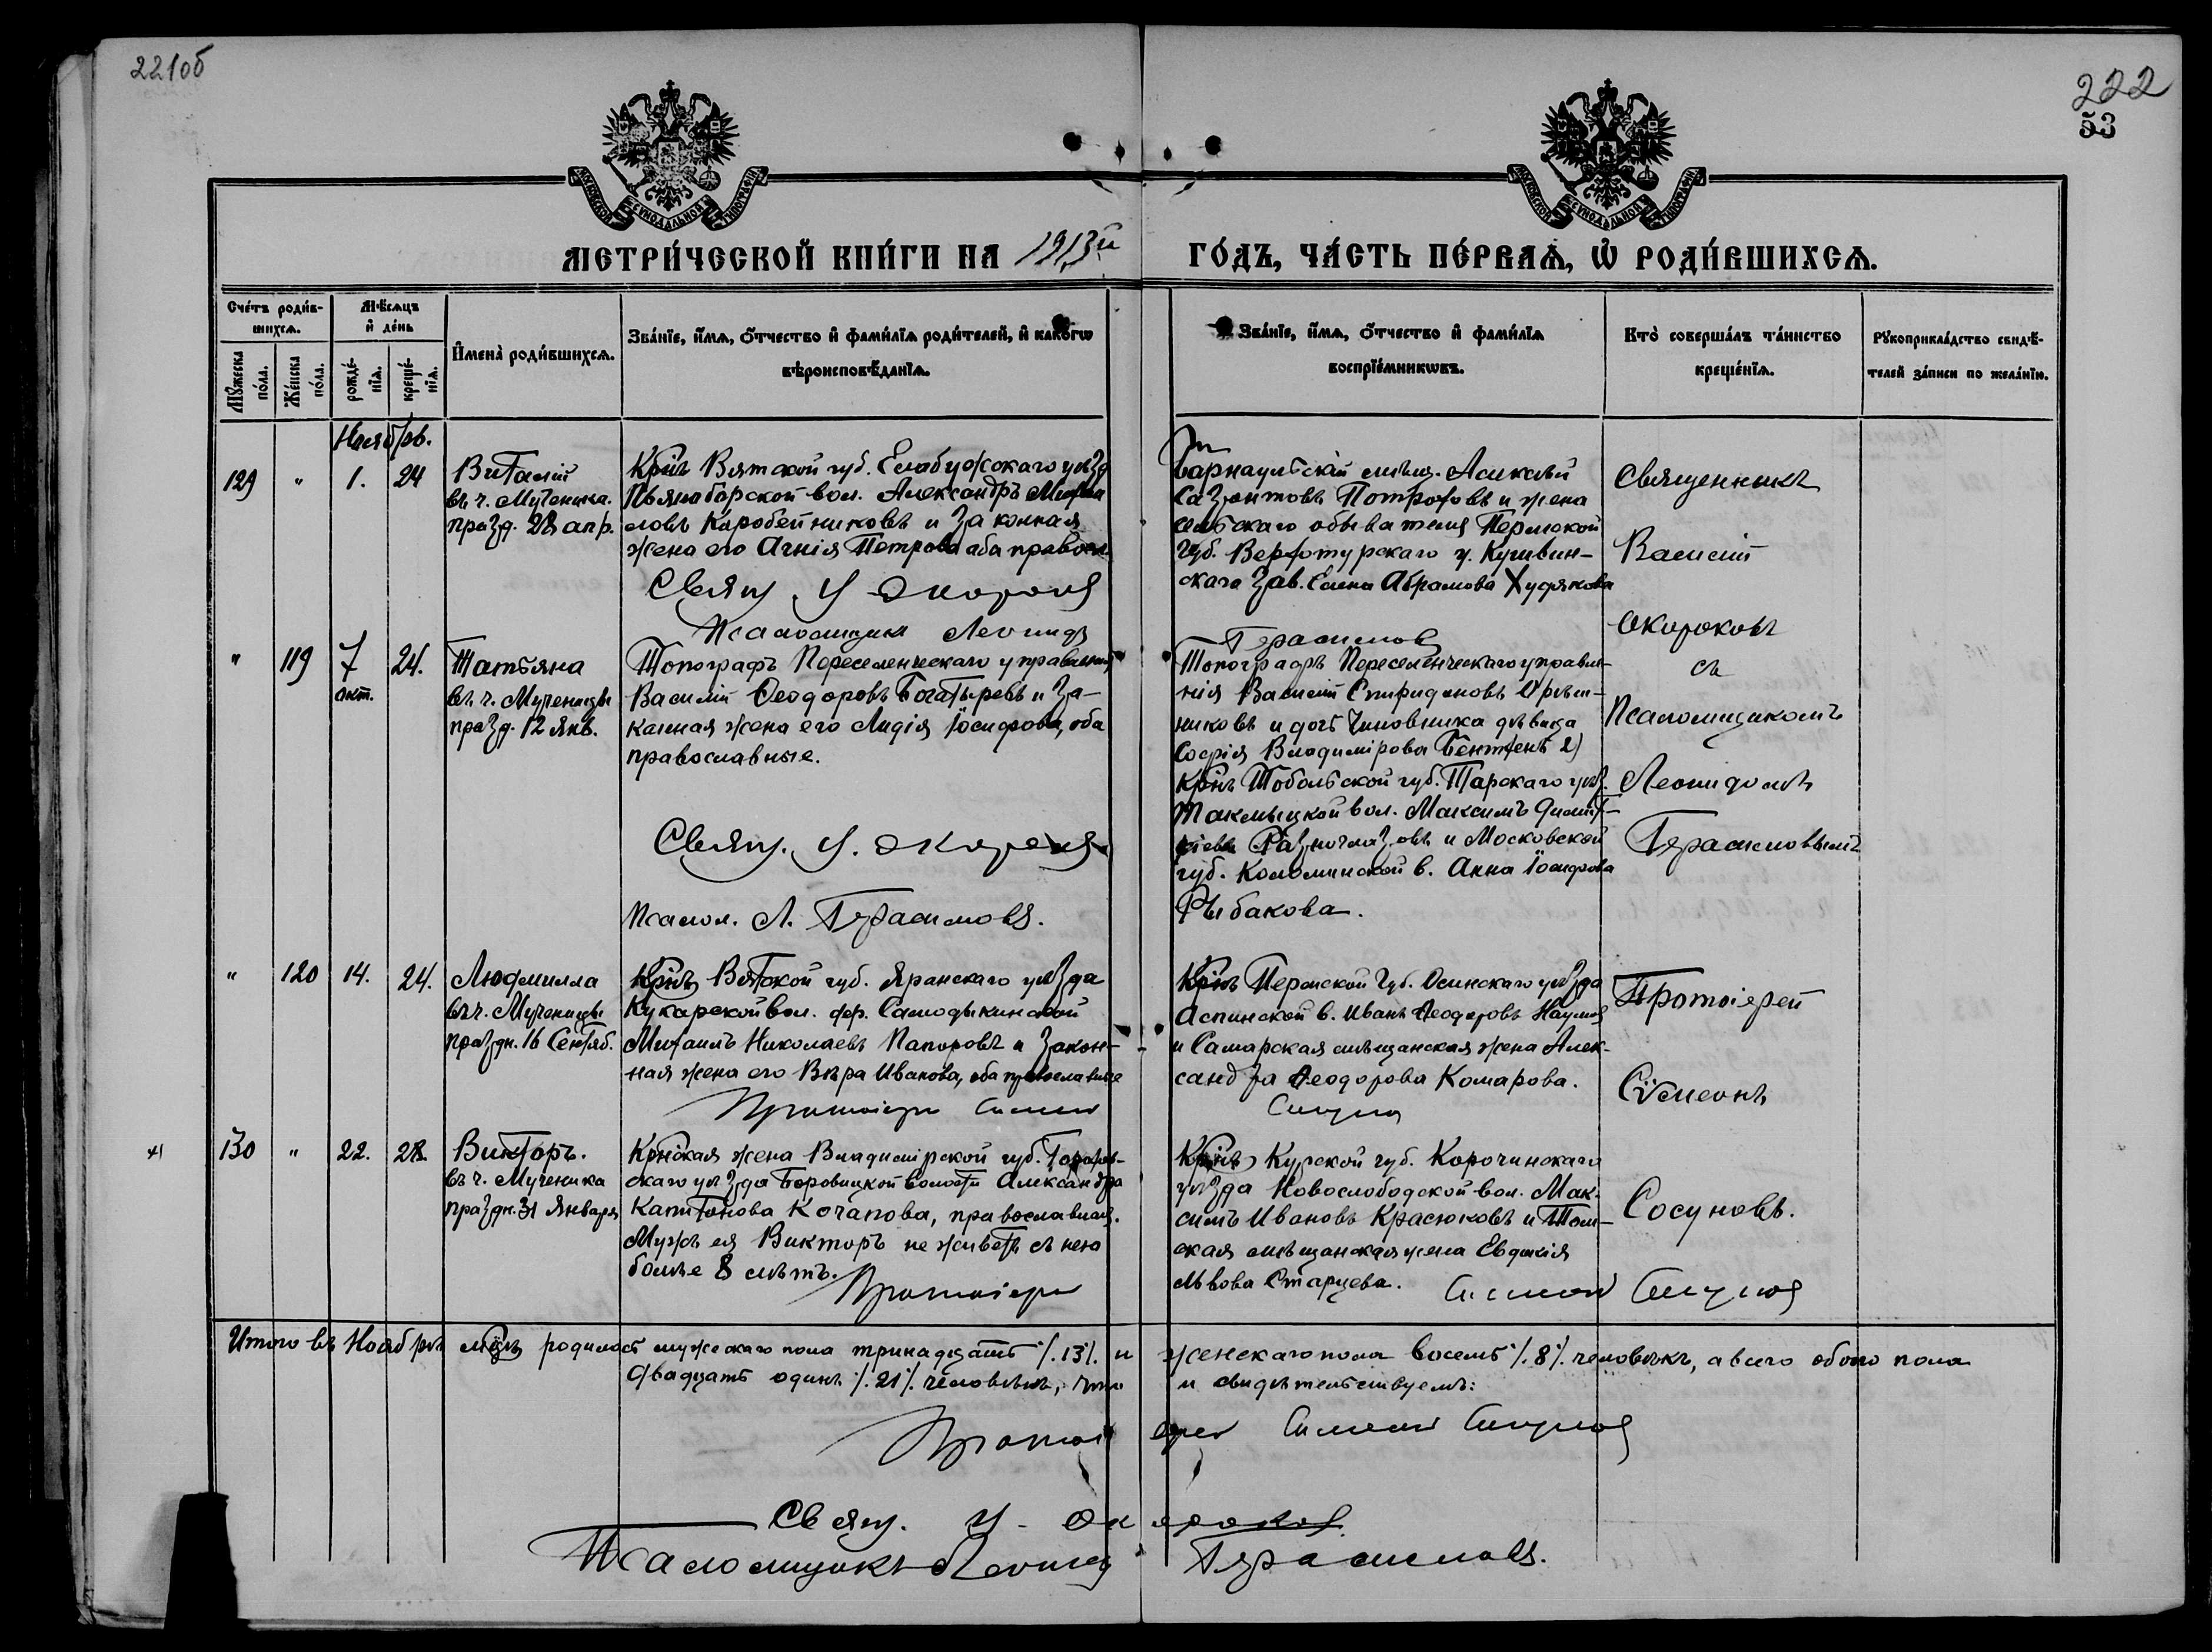 221об
222
53
МЕТРИ́ЧЕСКОЙ КНИ́ГИ НА 1913й
ГО́ДЪ, ЧА́СТЬ ПЕ́РВАѦ, Ѡ҆ РОДИ́ВШИХСѦ.
Сче́тъ роди́в-
шихсѧ.
Мѣ́сѧцъ
и҆ де́нь
Мꙋ́жеска
по́ла.
Же́нска
по́ла.
рожде́-
нїѧ.
креще́-
нїѧ.
И҆мена̀ роди́вшихсѧ.
Зва́нїе, и҆́мѧ, ѻ҆́тчество и҆ фамилїѧ роди́телей, и҆ како́гѡ
вѣроисповѣ́данїѧ.
Зва́нїе, и҆́мѧ, ѻ҆́тчество и҆ фами́лїѧ
воспрїе́мникѡвъ.
Кто̀ соверша́лъ та́инство
креще́нїѧ.
Рꙋкоприкла́дство свидѣ́-
телей за́писи по жела́нїю.
Ноябрь.
129 " 1. 24
Виталій
въ ч. Мученика.
празд. 28 апр.
Крнъ Вятской губ. Елабужскаго уѣзд
Пьяноборской вол. Александръ Михаи
ловъ Коробейниковъ и законная
жена его Агнія Петрова оба правосл.
Свящ. Окороков
Псаломщик Леонид
Барнаульскій мѣщ. Асикій
Сазонтовъ и жена
сельскаго обывателя Пермской
губ. Верхотурскаго у. Кушвин-
скаго зав. Елена Абрамова Худякова
Герасимов
Священникъ
Василій
Окороковъ
съ
Псаломщикомъ
Леонидомъ
Герасимовымъ
" 119 7 окт. 24.
Татьяна
въ ч. Мученицы
празд. 12 янв.
Топографъ Переселенческаго управленія
Василій Ѳеодоровъ Богатыревъ и за-
конная жена его Лидія Іосифова, оба
православные.
Свящ. Окороков
Псалом. Л. Герасимовъ.
Топографъ Переселенческаго управле-
нія Василій Спиридоновъ
никовъ и дочь чиновника дѣвица
Софія Владимірова 2)
Крнъ Тобольской губ. Тарскаго уѣз.
Такмыцкой вол. Максимъ Димит-
ріевъ Разноглазовъ и Московской
губ. Коломинской в. Анна Іосифова
Рыбакова.
" 120 14. 24.
Людмилла
въ ч. Мученицы
праздн. 16 Сентяб.
Крнъ Вятской губ. Яранскаго уѣзда
Кукарской вол. дер. Самодыкинской
Михаилъ Николаевъ Папоровъ и закон-
ная жена его Вѣра Иванова, оба православные
Протоіерей Симеон
Крнъ Пермской губ. Осинскаго уѣзда
Аспинской в. Иванъ Ѳеодоровъ Наумов
и Самарская мѣщанская жена Алек-
сандра Ѳеодорова Комарова.
Сосунов
Протоіерей
Сѵмеонъ
Сосуновъ.
130 " 22. 28.
Викторъ.
въ ч. Мученика
праздн. 31 Января
Крнская жена Владимірской губ. Горохов-
скаго уѣзда Боровицкой волости Александра
Капитонова Кочапова, православная.
Мужъ ея Викторъ не живетъ съ нею
болѣе 8 лѣтъ.
Протоіерей
Крнъ Курской губ. Корочинскаго
уѣзда Новослободской вол. Мак-
симъ Ивановъ Красюковъ и Том-
ская мѣщанская жена Евдокія
Львова Старцева.
Симеон Сосунов
Итого въ Ноябрѣ мцѣ родилось мужескаго пола тринадцать /.13/. и женскаго пола восемь /.8/. человѣкъ, а всего обоего пола
двадцать одинъ /.21/. человѣкъ, что и свидѣтельствуемъ:
Протоіерей Симеон Сосунов
Свящ. Окороков
Псаломщикъ Леонид Герасимовъ.